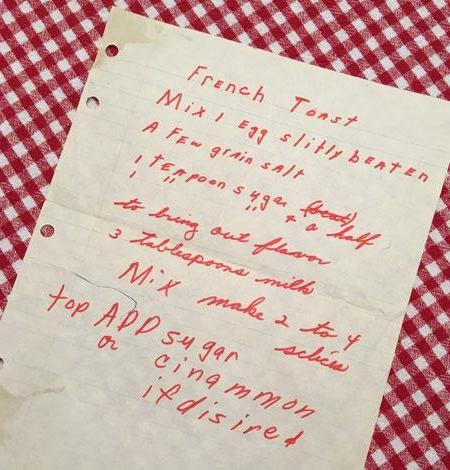 French Toast
Mix 1 Egg slitly beaten
A Few grain salt
1 teaspoon sugar + a half
to bring out flavor
3 tablespoons milk
Mix make 2 to 4
selices
top ADD sugar
or cinammon
if disired